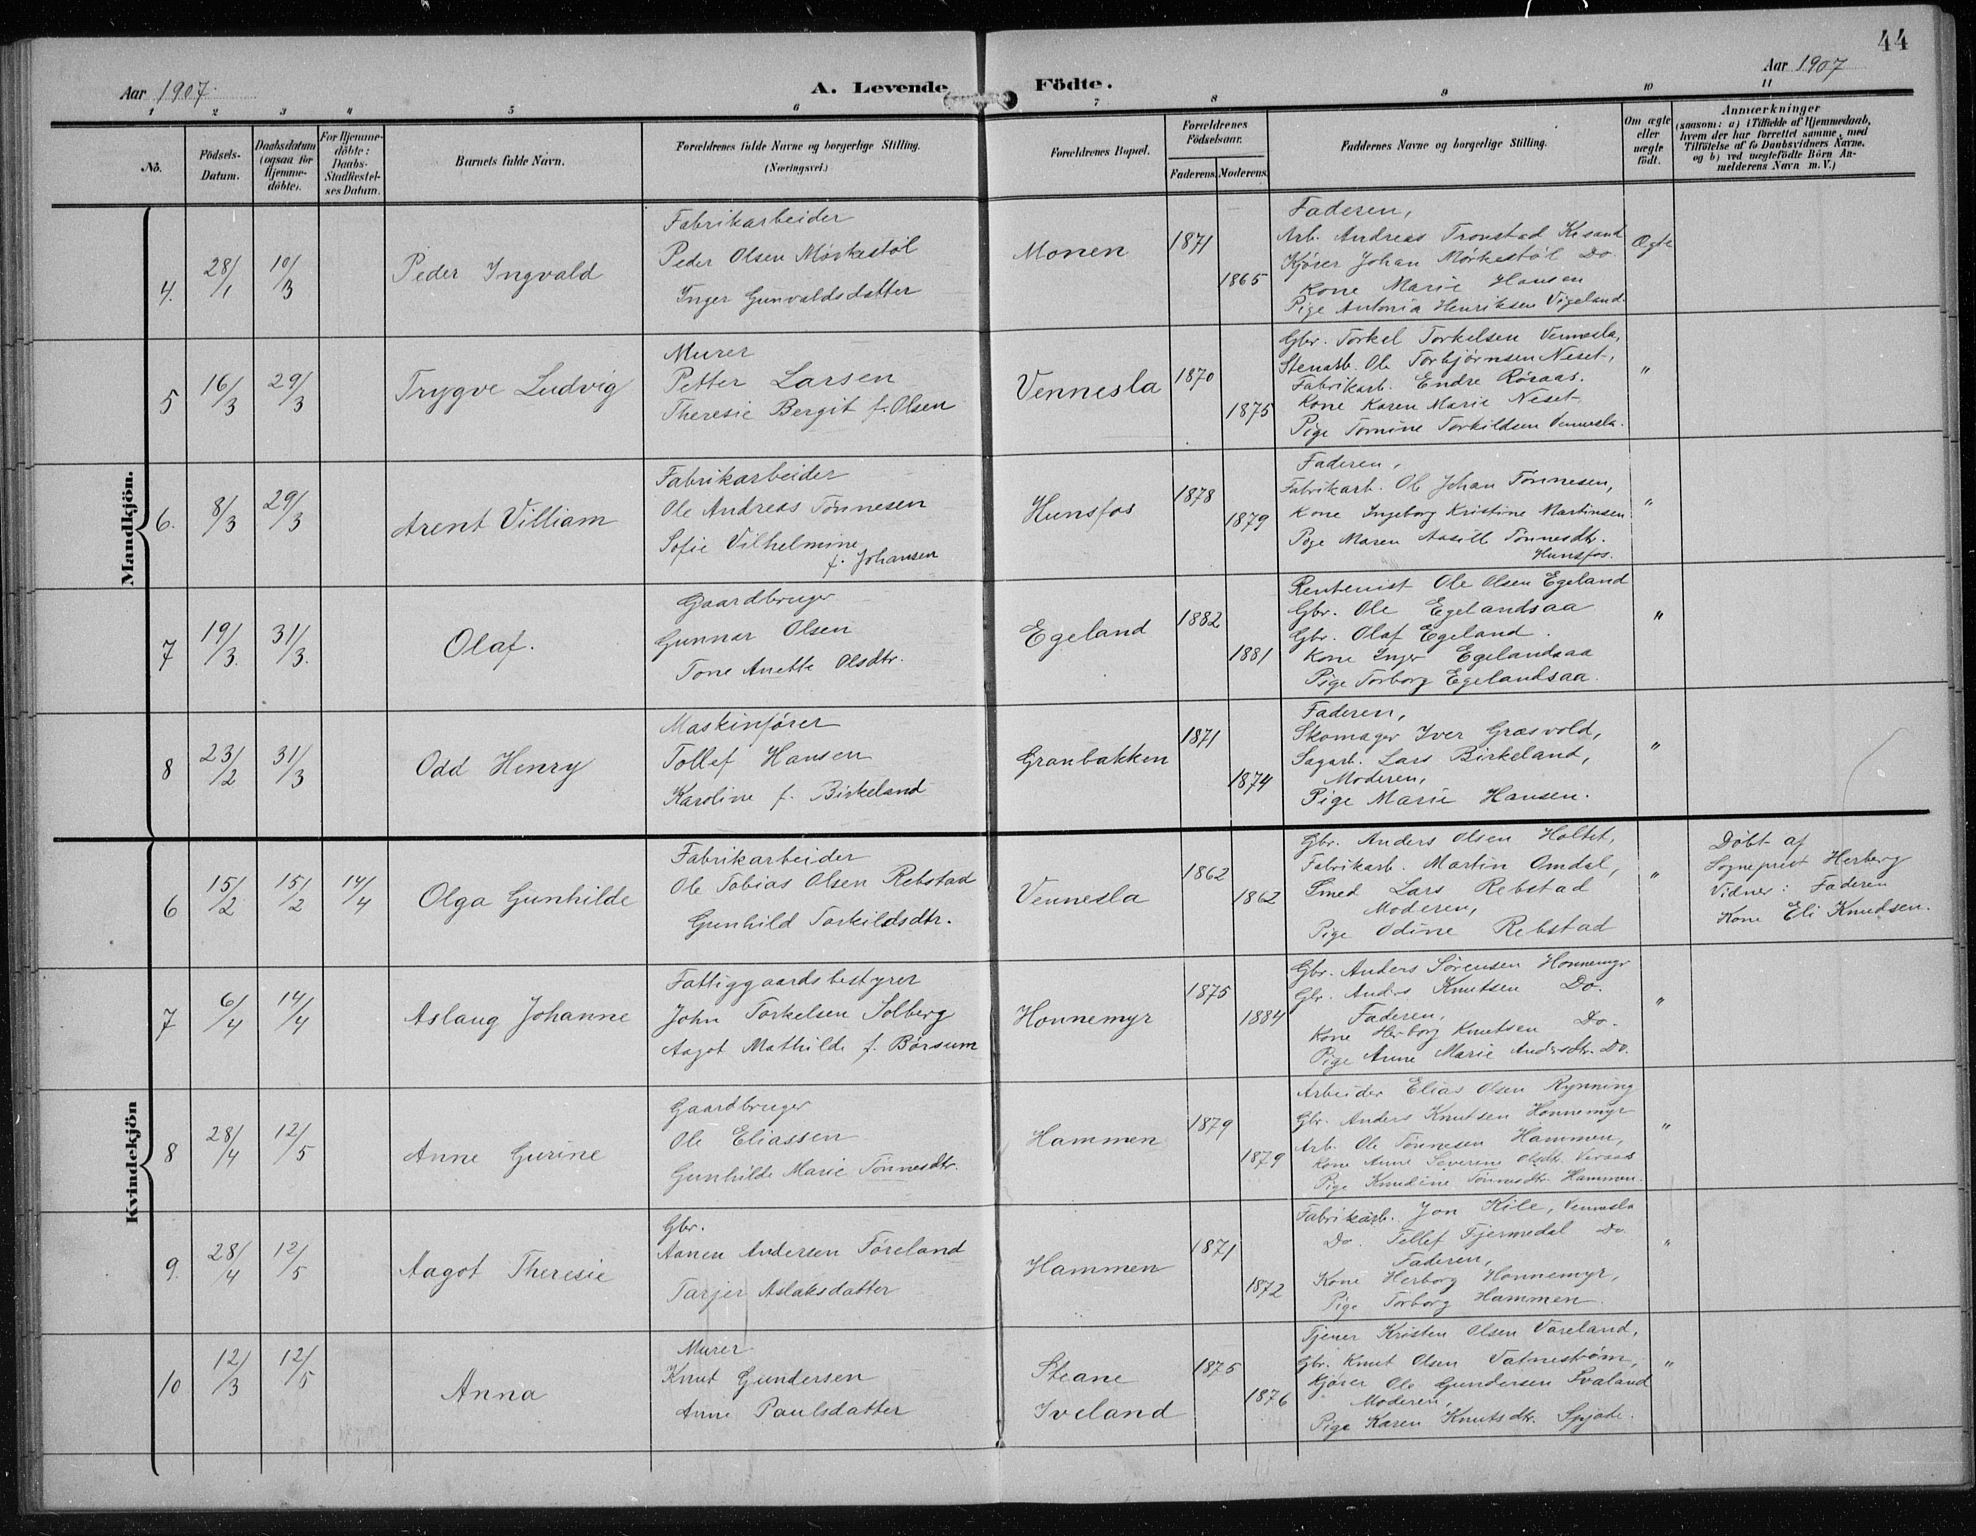 44
Aar 1907.
A. Levende
Födte.
Aar 1907
1 2 3 4 5 6 7 8 9 10 11
No.
Födsels-
Datum.
Daabsdatum
(ogsaa for
Hjemme-
döbte).
For Hjemme-
döbte:
Daabs-
Stadfæstel-
ses Datum.
Barnets fulde Navn.
Forældrenes fulde Navne og borgerlige Stilling.
(Næringsvei.)
Forældrenes Bopæl.
Forældrenes
Födselsaar.
Faderens. Moderens.
Faddernes Navne og borgerlige Stilling.
Om ægte
eller
uægte
födt.
Anmærkninger
(saasom: a) i Tilfælde af Hjemmedaab,
hvem der har forrettet samme, med
Tilföielse af to Daabsvidners Navne,
og b) ved uægtefödte Börn An-
melderens Navn m. V.)
Mandkjön.
4. 28/1 10/3 Peder Ingvald
Fabrikarbeider
Peder Olsen Mørkestøl
Inger Gunvaldsdatter
Monen 1871 1865
Faderen,
Arb. Andreas Tronstad Krsand
Kjører Johan Mørkestøl Do
Kone Marie Hansen
Pige Antonia Henriksen Vigeland.
Ægte
5 16/3 29/3 Trygve Ludvig
Murer
Petter Larsen
Theresie Bergit f. Olsen
Vennesla 1870 1875
Gbr. Torkel Torkelsen Vennesla,
Stenarb. Ole Torbjørnsen Neset,
Fabrikarb. Endre Røraas.
Kone Karen Marie Neset.
Pige Tomine Torkildsen Vennesla.
"
6. 8/3 29/3 Arent Villiam
Fabrikarbeider
Ole Andreas Tønnesen
Sofie Vilhelmine
f. Johansen
Hunsfos 1878 1879
Faderen,
Fabrikarb. Ole Johan Tønnesen,
Kone Ingeborg Kristine Martinsen
Pige Maren Aasill Tønnesdtr.
Hunsfos.
"
7 19/3. 31/3. Olaf.
Gaardbruger
Gunnar Olsen
Tone Anette Olsdtr.
Egeland 1882 1881
Rentenist Ole Olsen Egeland
Gbr. Ole Egelandsaa
Gbr. Olaf Egeland.
Kone Inger Egelandsaa
Pige Torborg Egelandsaa.
"
8 23/2 31/3 Odd Henry
Maskinfører
Tollef Hansen
Karoline f. Birkeland
Granbakken 1871 1874
Faderen,
Skomager Iver Græsvold,
Sagarb. Lars Birkeland,
Moderen,
Pige Marie Hansen.
"
Kvindekjön
6 15/2 15/2 14/4 Olga Gunhilde
Fabrikarbeider
Ole Tobias Olsen Rebstad
Gunhild Torkildsdtr.
Vennesla 1862 1862
Gbr. Anders Olsen Holtet,
Fabrikarb. Martin Omdal,
Smed Lars Rebstad
Moderen,
Pige Odine Rebstad
"
Døbt af
Sogneprest Herberg
Vidner: Faderen
Kone Eli Knudsen.
7 6/4 14/4 Aslaug Johanne
Fattiggaardsbestyrer
John Torkelsen Solberg
Aagot Mathilde f. Børsum
Honnemyr 1875 1884
Gbr. Anders Sørensen Honnemyr
Gbr. Anders Knutsen Do.
Faderen,
Kone Herborg Knutsen Do.
Pige Anne Marie Andersdtr. Do.
"
8 28/4 12/5 Anne Gurine
Gaardbruger
Ole Eliassen
Gunhilde Marie Tønnesdtr.
Hammen 1879 1879
Arbeider Elias Olsen Rynning
Gbr. Anders Knutsen Honnemyr
Arb. Ole Tønnesen Hammen,
Kone Anne Severine Olsdtr. Veraas
Pige Knudine Tønnesdtr. Hammen.
"
9. 28/4 12/5 Aagot Theresie
Gbr.
Aanen Andersen Føreland
Tarjer Aslaksdatter
Hammen 1871 1872
Fabrikarb. Jon Kile, Vennesla
Do. Tellef Fjermedal Do
Faderen,
Kone Herborg Honnemyr,
Pige Torborg Hammen
"
10 12/3 12/5 Anna
Murer
Knut Gundersen
Anne Paulsdatter
Steane
Iveland
1875 1876
Tjener Kristen Olsen Vareland,
Gbr. Knut Olsen Vatnestrøm,
Kjører Ole Gundersen Fvaland
Moderen,
Pige Karen Knutsdtr.
"